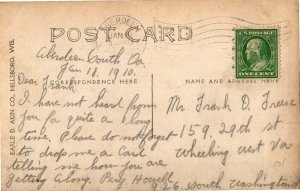 POST CARD
Aberdeen South Da
Jan 18, 1910.
CORRESPONDENCE HERE
NAME AND ADDRESS HERE
Dear Frank
I have not heard from
you for quite a long
time. Please do not forget
to drop me a Card
telling me how you are
getting along. Percy Howell
926 South Washington
Mr Frank D. Freese
159, 29th st
Wheeling west Va
EARLE D. AKIN CO., HILLSBORO, WIS.
ONE CENT